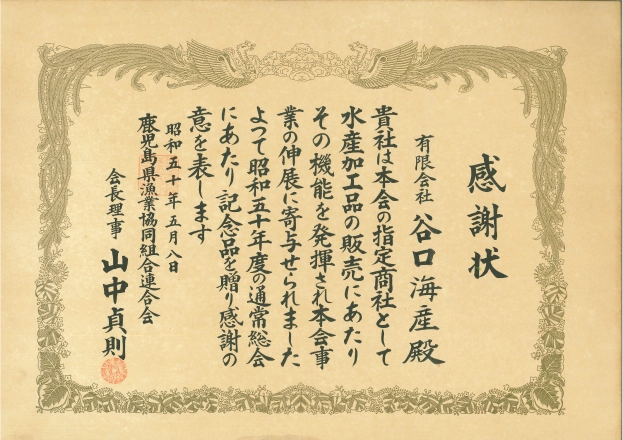 感謝状
有限会社 谷口海産殿
貴社は本会の指定商社として
水産加工品の販売にあたり
その機能を発揮され本会事
業の伸展に寄与せられました
よつて昭和五十年度の通常総会
にあたり記念品を贈り感謝の
意を表します
昭和五十年五月八日
鹿児島県漁業協同組合連合会
会長理事 山中貞則